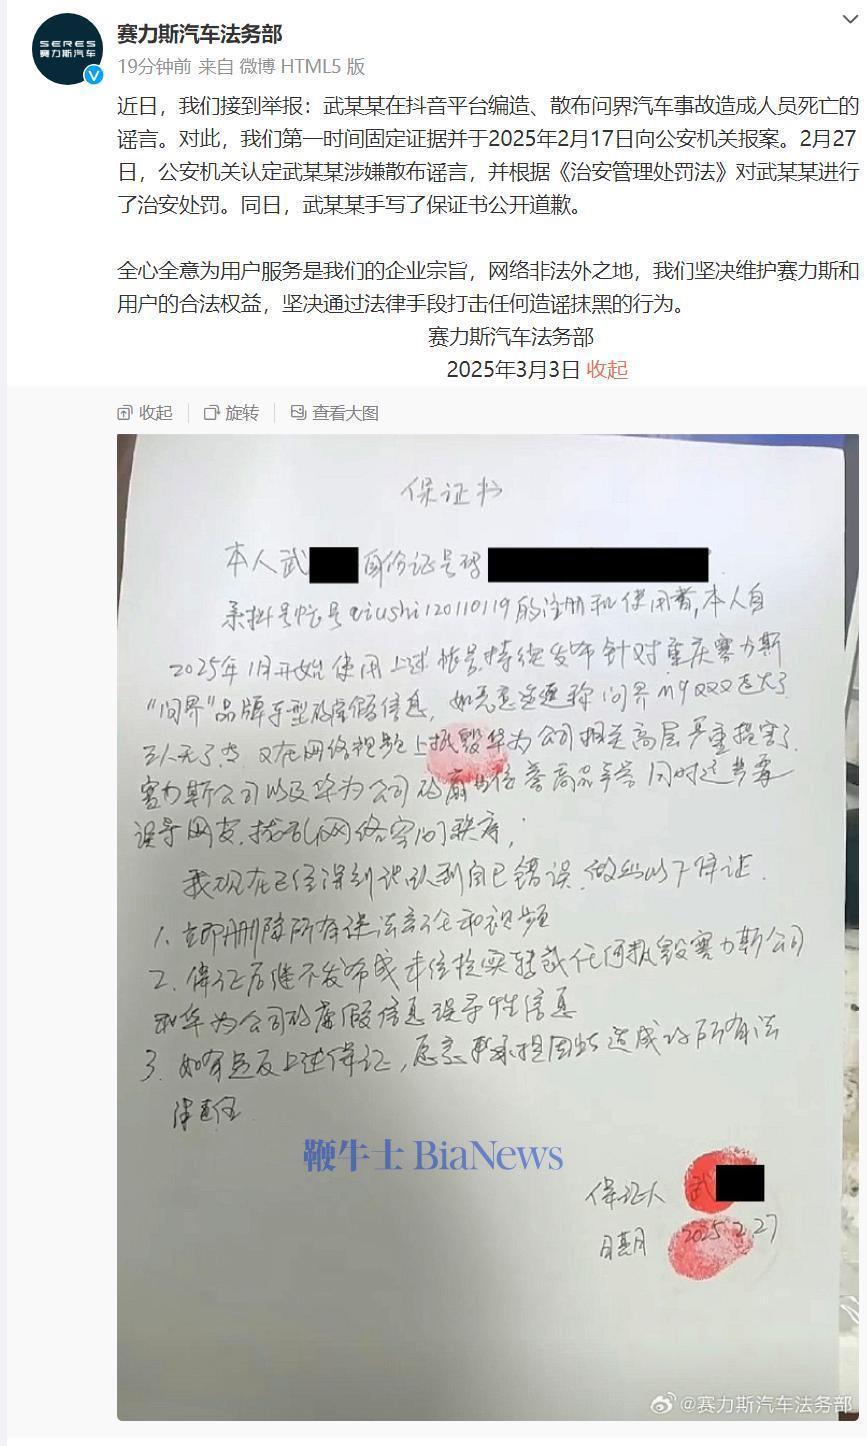 赛力斯汽车法务部
SERES
赛力斯汽车
19分钟前 来自 微博 HTML5 版
近日，我们接到举报：武某某在抖音平台编造、散布问界汽车事故造成人员死亡的
谣言。对此，我们第一时间固定证据并于2025年2月17日向公安机关报案。2月27
日，公安机关认定武某某涉嫌散布谣言，并根据《治安管理处罚法》对武某某进行
了治安处罚。同日，武某某手写了保证书公开道歉。
全心全意为用户服务是我们的企业宗旨，网络非法外之地，我们坚决维护赛力斯和
用户的合法权益，坚决通过法律手段打击任何造谣抹黑的行为。
赛力斯汽车法务部
2025年3月3日 收起
收起 旋转 查看大图
保证书
本人武 身份证号码
系抖号帐号qiushi120110119的注册和使用者,本人自
2025年1月开始使用上述帐号持续发布针对重庆赛力斯
"问界"品牌车型的虚假信息，如恶意造谣称问界m9 又起火了
三人无了.查 又在网络视频上抵毁华为公司相关高层严重损害了
赛力斯公司以及华为公司的商业信誉商品声誉 同时这些
误导网友.扰乱网络空间秩序;
我现在已经深刻认识到自己错误.做出以下保证.
1. 立即删除所有违法言论和视频
2. 保证后继不发布或未经核实转载任何抵毁赛力斯公司
和华为公司的虚假信息 误导性信息
3. 如有违反上述保证,愿意承担因此造成的所有法
律责任.
鞭牛士 BiaNews
保证人 武
日期 2025 2.27
@赛力斯汽车法务部